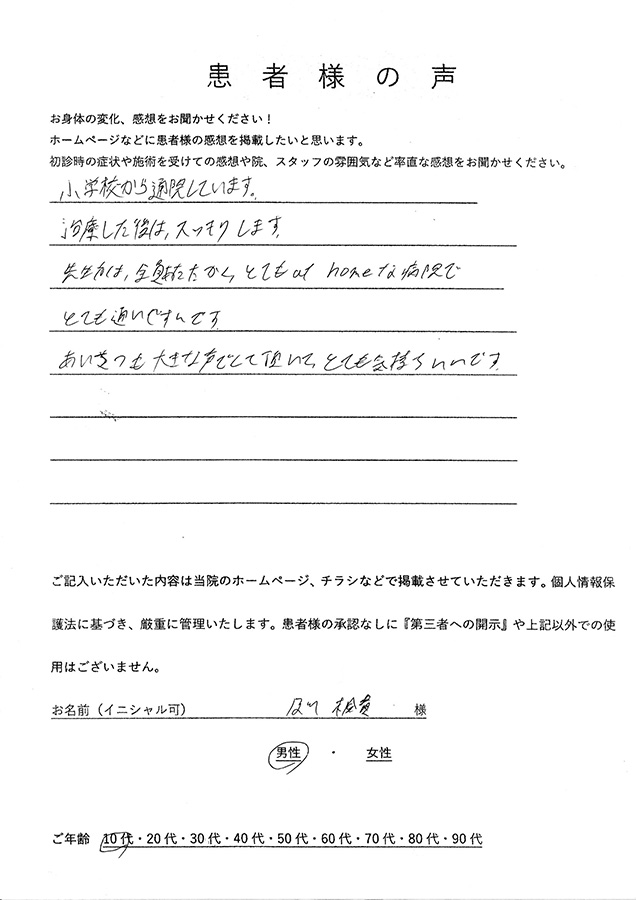 患者様の声
お身体の変化、感想をお聞かせください！
ホームページなどに患者様の感想を掲載したいと思います。
初診時の症状や施術を受けての感想や院、スタッフの雰囲気など率直な感想をお聞かせください。
小学校から通院しています。
治療した後は、スッキリします。
先生方は、全員あたたかく、とてもat homeな病院で
とても通いですんです
あいさつも大きな声でして頂いて、とても気持ちいいです。
ご記入いただいた内容は当院のホームページ、チラシなどで掲載させていただきます。個人情報保
護法に基づき、厳重に管理いたします。患者様の承認なしに『第三者への開示』や上記以外での使
用はございません。
お名前（イニシャル可） 様
男性 ・ 女性
ご年齢 10代・20代・30代・40代・50代・60代・70代・80代・90代